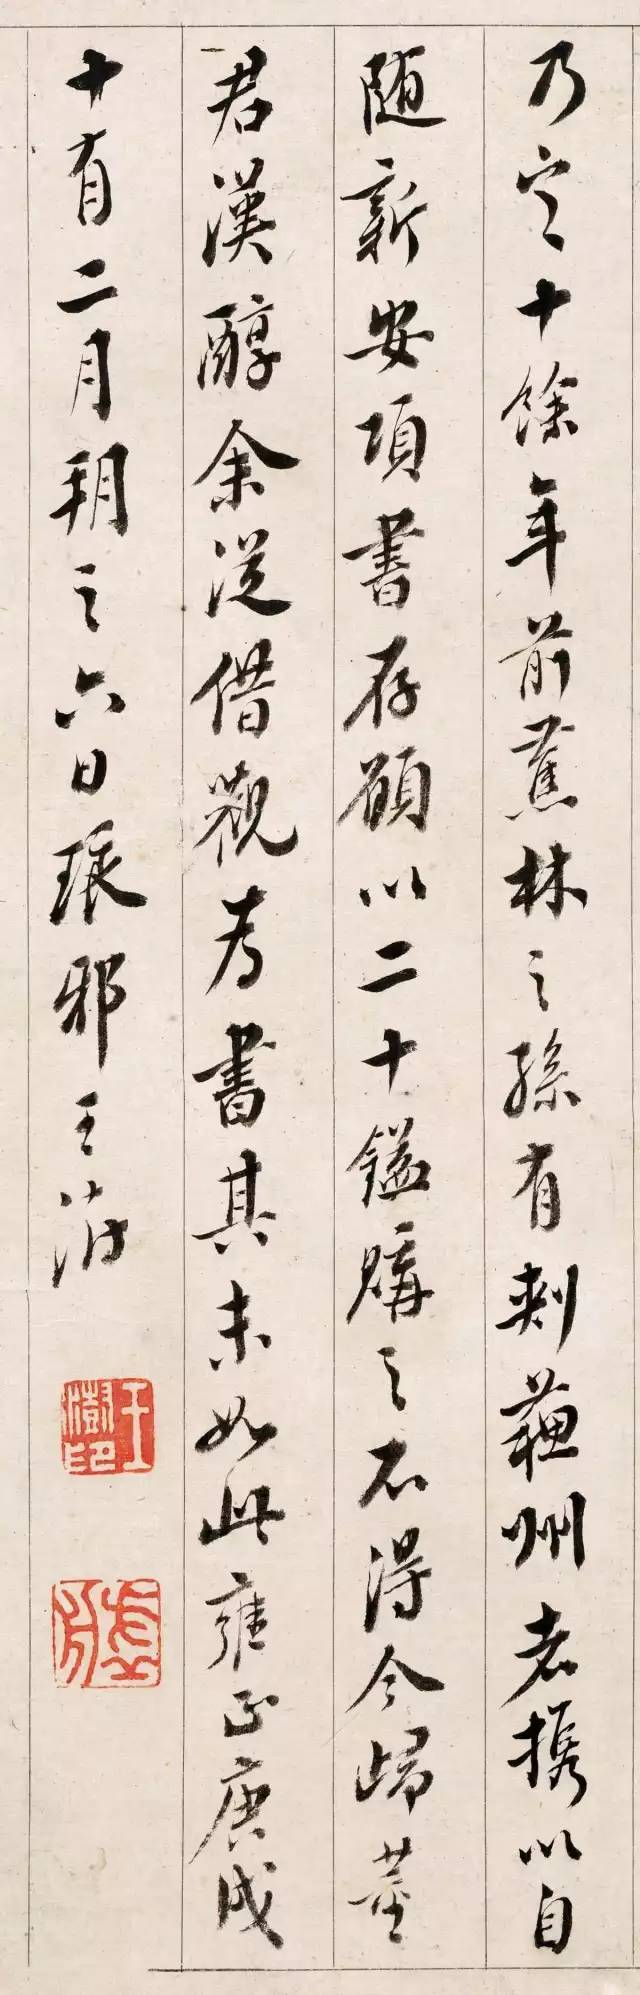 乃定十餘年前蕉林之孫有刺蘇州者攜以自
隨新安項書存顧以二十鎰購之不得今歸董
君漢醇余從借觀為書其末如此雍正庚戌
十有二月朔之六日琅邪王澍
王澍印
虛舟